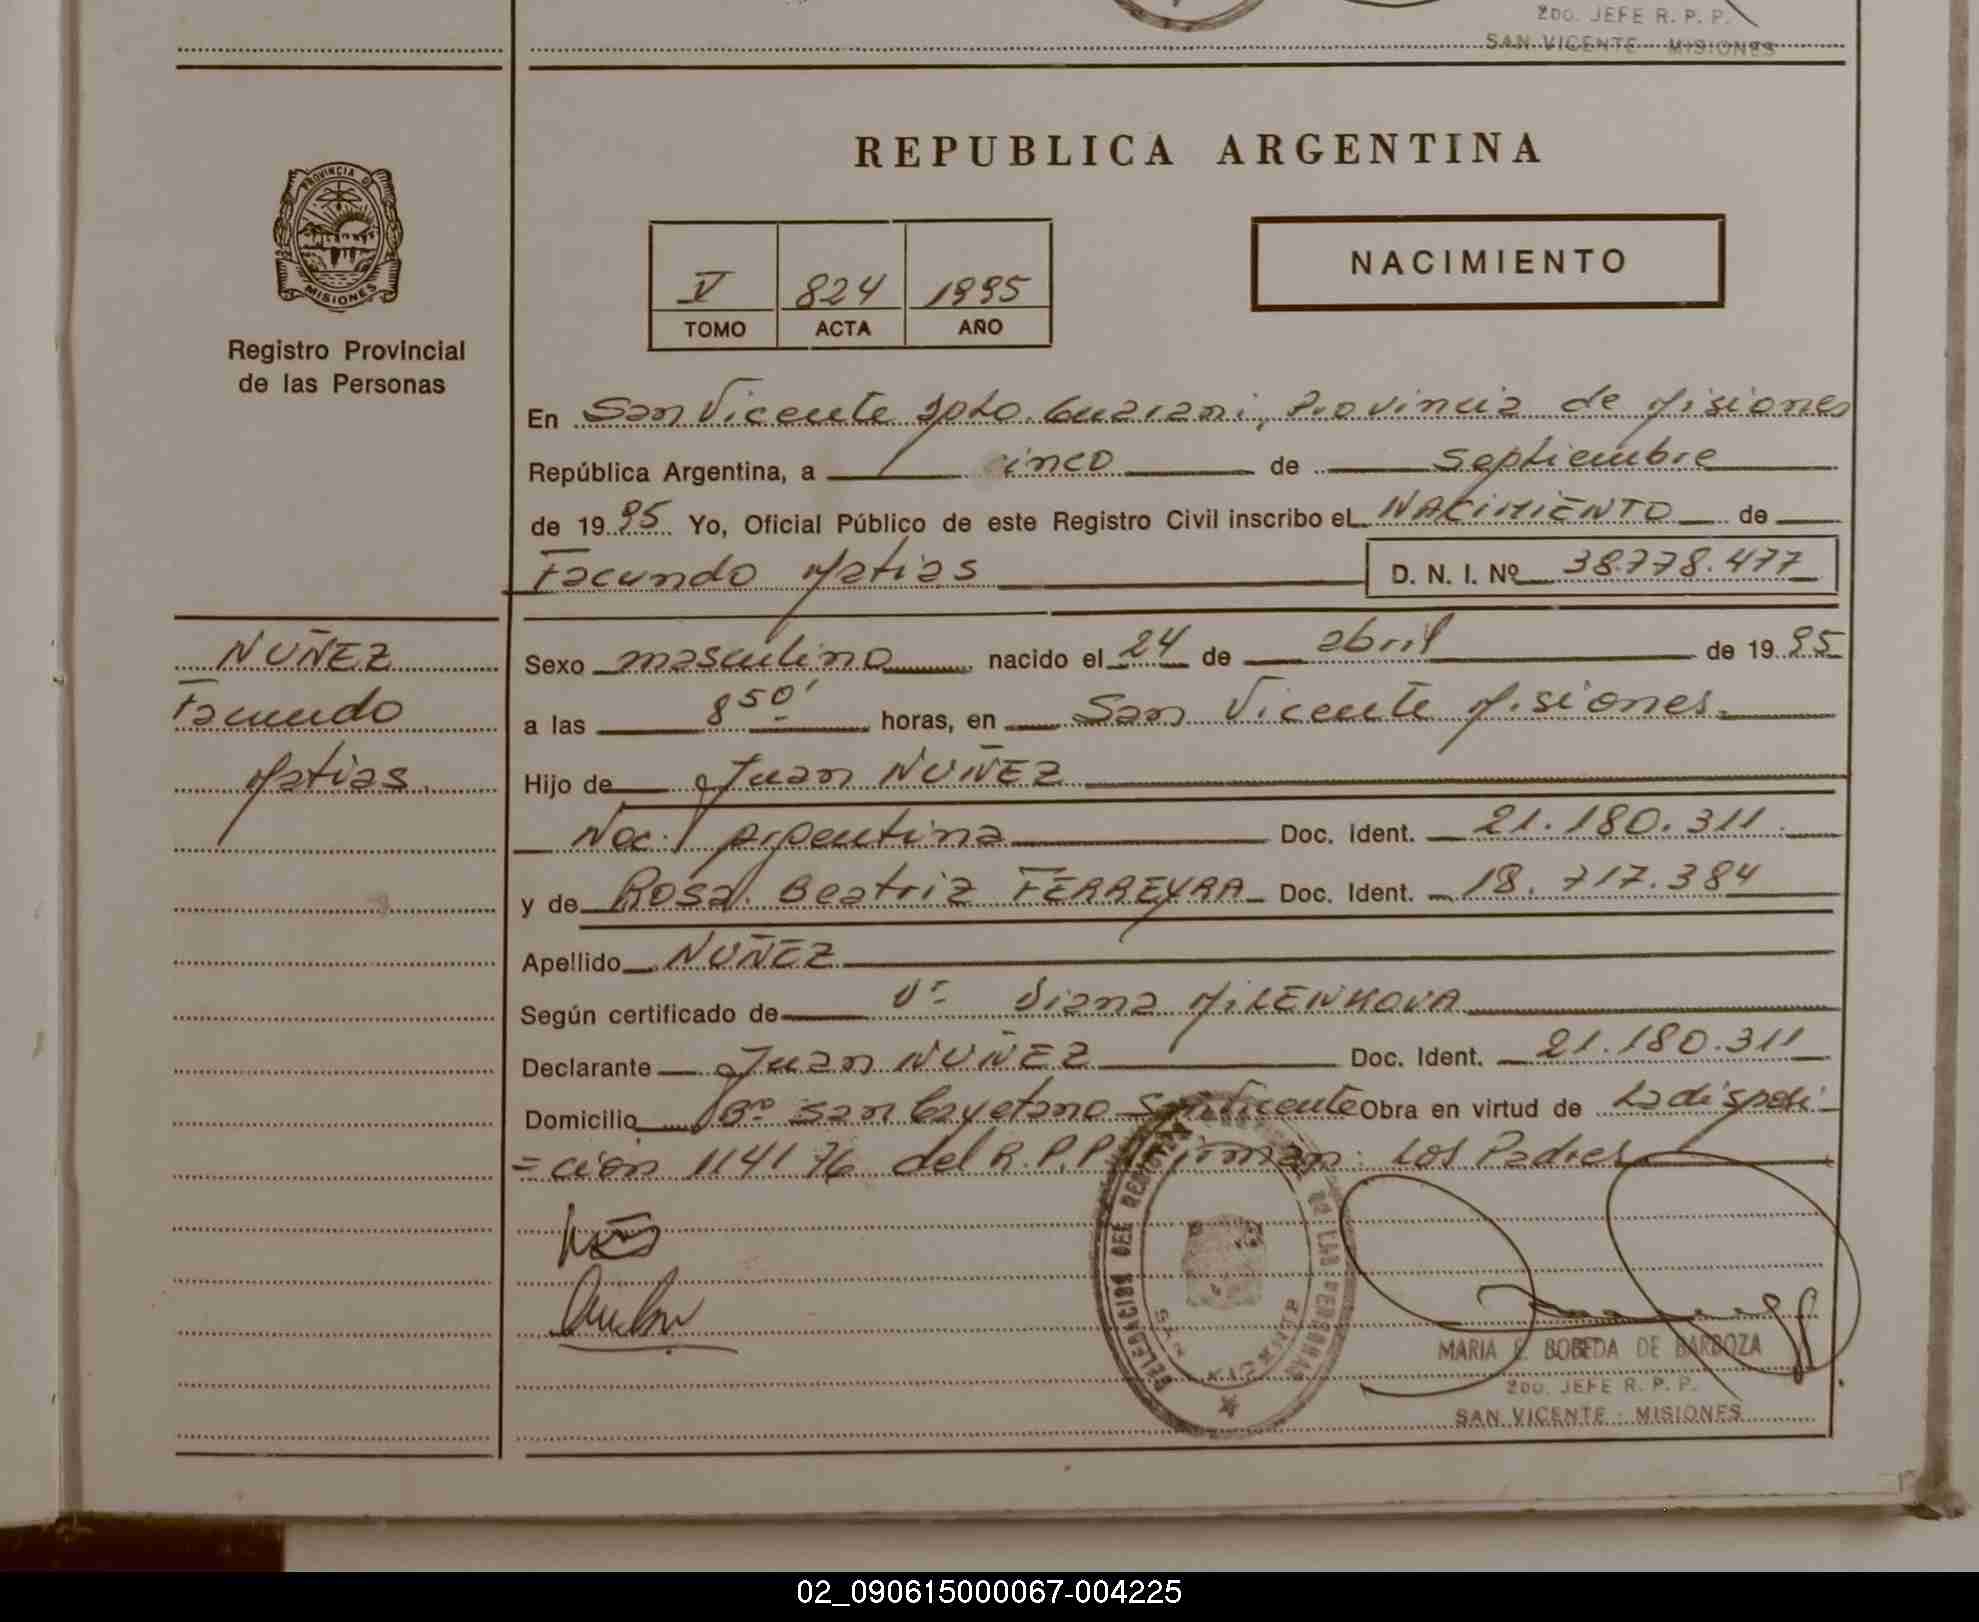 2DO. JEFE R. P. P.
SAN VICENTE - MISIONES
PROVINCIA DE
MISIONES
Registro Provincial
de las Personas
REPUBLICA ARGENTINA
V 824 1995
TOMO ACTA AÑO
NACIMIENTO
En San Vicente Dpto. Guarani, Provincia de Misiones
República Argentina, a cinco de septiembre
de 1995 Yo, Oficial Público de este Registro Civil inscribo el NACIMIENTO de
Facundo Matias D. N. I. Nº 38.778.477
NUÑEZ
Facundo
Matias
Sexo masculino nacido el 24 de abril de 1995
a las 8 50' horas, en San Vicente Misiones.
Hijo de Juan NUÑEZ
Nac. Argentina Doc. Ident. 21.180.311
y de Rosa Beatriz FERREYRA Doc. Ident. 18.717.384
Apellido NUÑEZ
Según certificado de Diana MILENKOVA
Declarante Juan NUÑEZ Doc. Ident. 21.180.311
Domicilio Bº San Cayetano San Vicente Obra en virtud de La disposi
=ción 1141 76 del R.P.P. Firman: Los Padres
DELEGACION DEL REGISTRO DE LAS PERSONAS
SAN VICENTE
MARIA E. BOBEDA DE BARBOZA
2DO. JEFE R. P. P.
SAN VICENTE - MISIONES
02_090615000067-004225